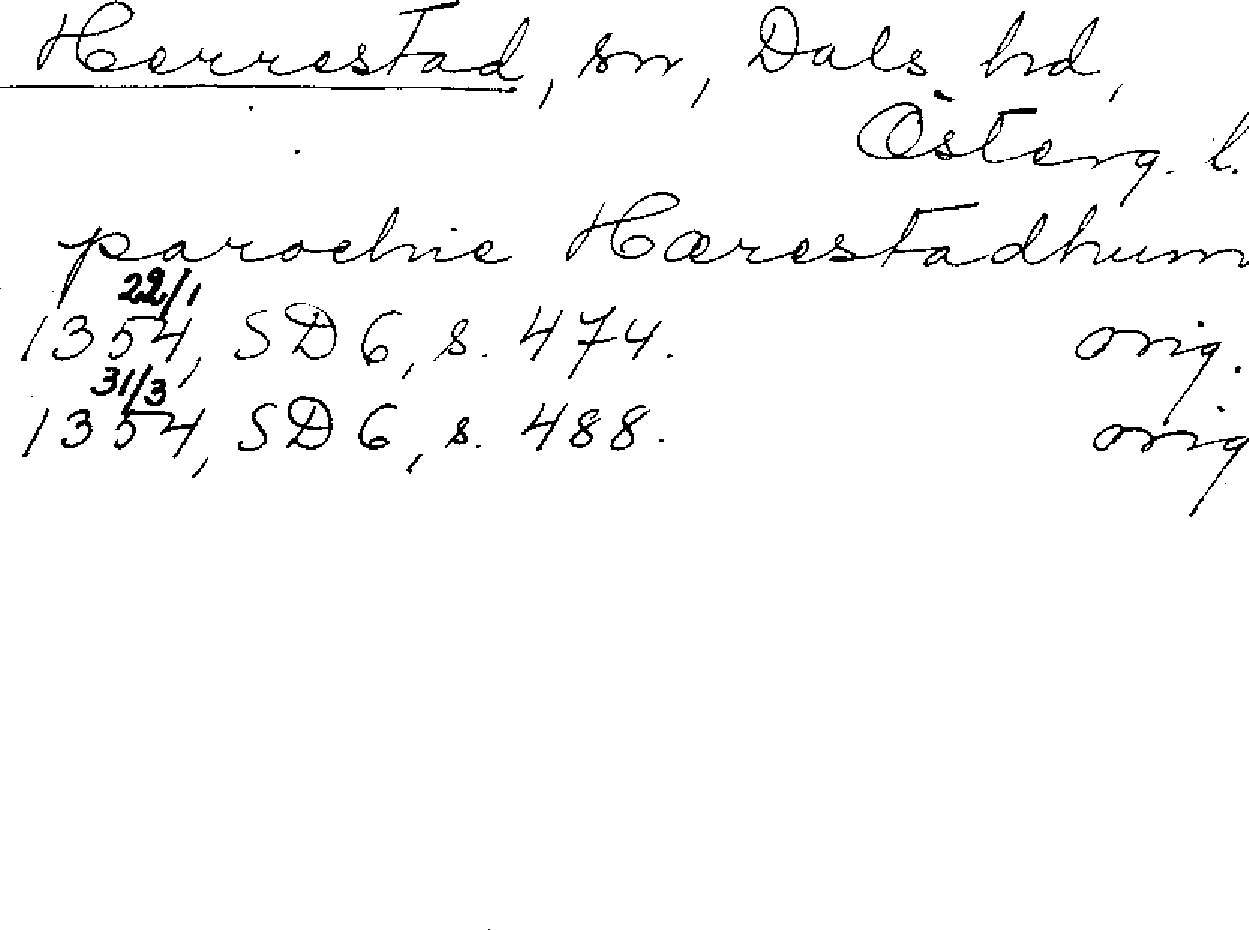 Herrestad, sn, Dals hd,
Österg. l.
parochie Hærestadhum
22/1
1354, SD 6, s. 474. orig.
31/3
1354, SD 6, s. 488. orig